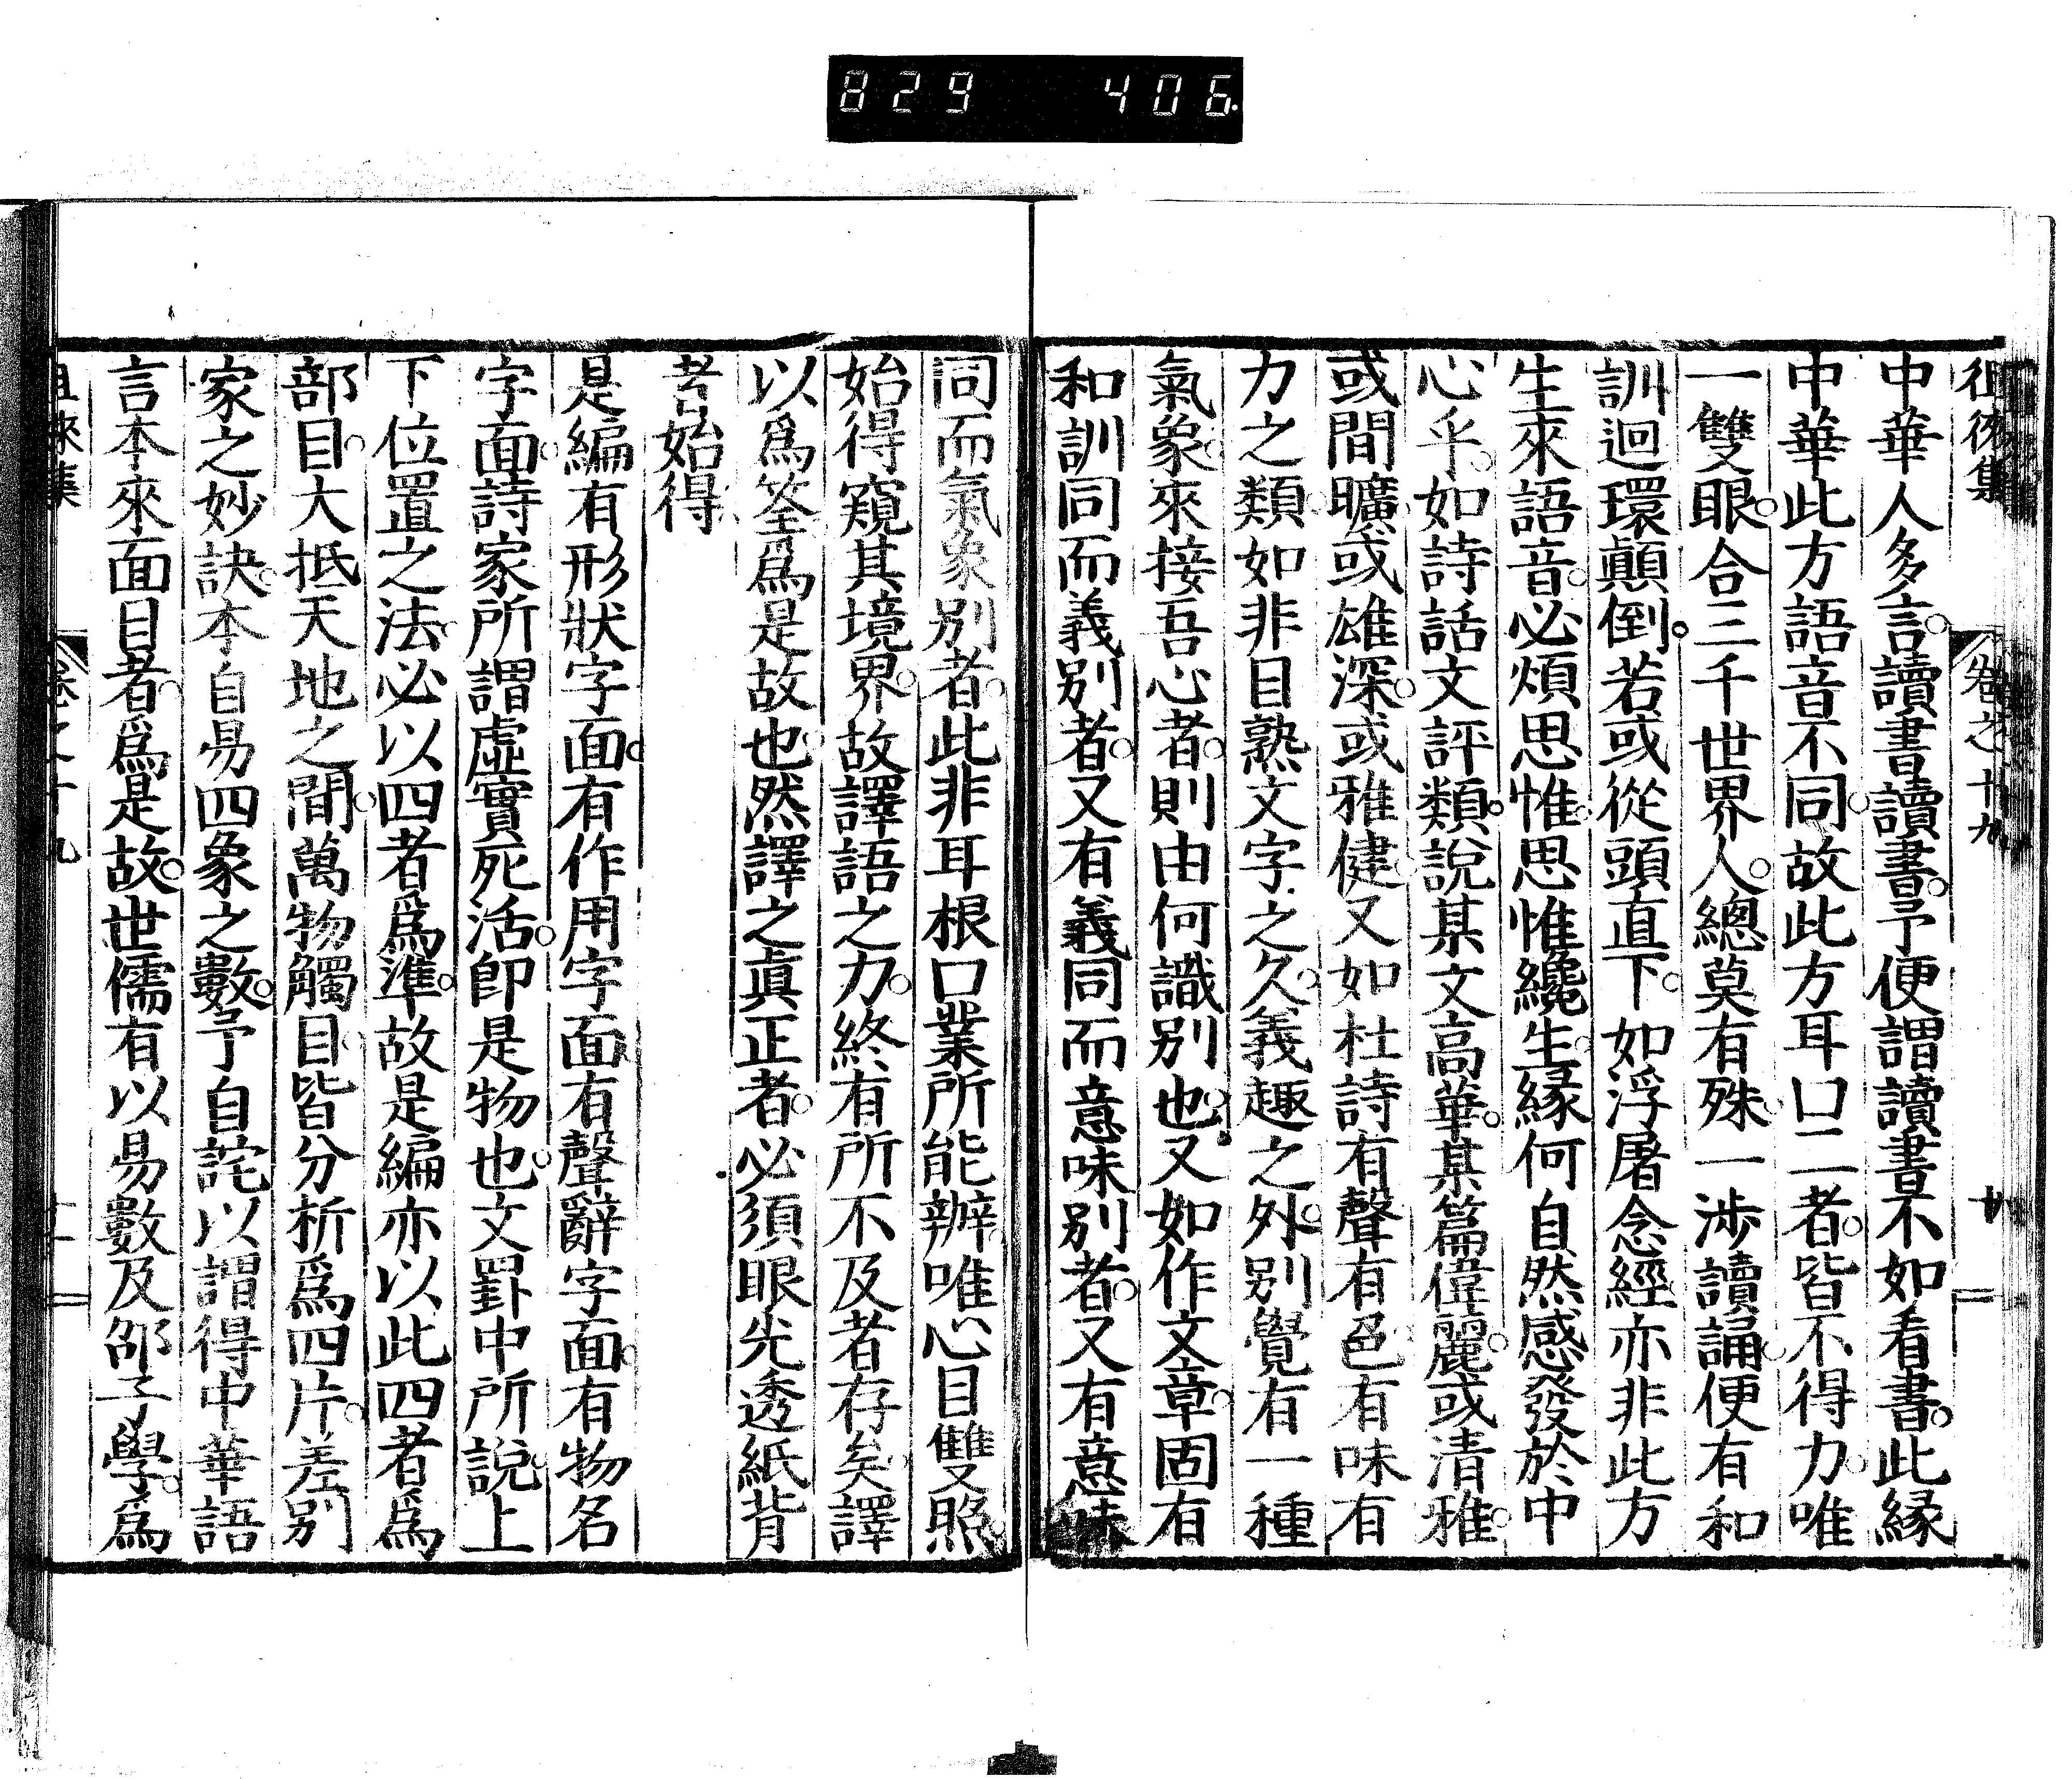 829 406
徂徠集 卷之十九 廿
中華人多言讀書讀書予便謂讀書不如看書此緣
中華此方語音不同故此方耳口二者皆不得力唯
一雙眼合三千世界人總莫有殊一涉讀誦便有和
訓迴環顛倒若或從頭直下如浮屠念經亦非此方
生來語音必煩思惟思惟纔生緣何自然感發於中
心乎如詩話文評類說某文高華某篇偉麗或清雅
或間曠或雄深或雅健又如杜詩有聲有色有味有
力之類如非目熟文字之久義趣之外別覺有一種
氣象來接吾心者則由何識別也又如作文章固有
和訓同而義別者又有義同而意味別者又有意味
同而氣象別者此非耳根口業所能辦唯心目雙照
始得窺其境界故譯語之力終有所不及者存矣譯
以爲筌爲是故也然譯之眞正者必須眼光透紙背
者始得
是編有形狀字面有作用字面有聲辭字面有物名
字面詩家所謂虛實死活即是物也文罫中所說上
下位置之法必以四者爲準故是編亦以此四者爲
部目大抵天地之間萬物觸目皆分析爲四片差別
家之妙訣本自易四象之數予自詫以謂得中華語
言本來面目者爲是故世儒有以易數及邵子學爲
徂徠集 卷之十九